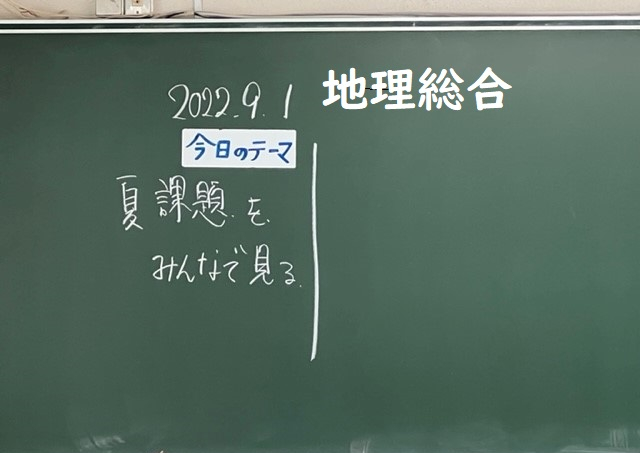 2022.9.1 地理総合
今日のテーマ
夏課題を
みんなで見る